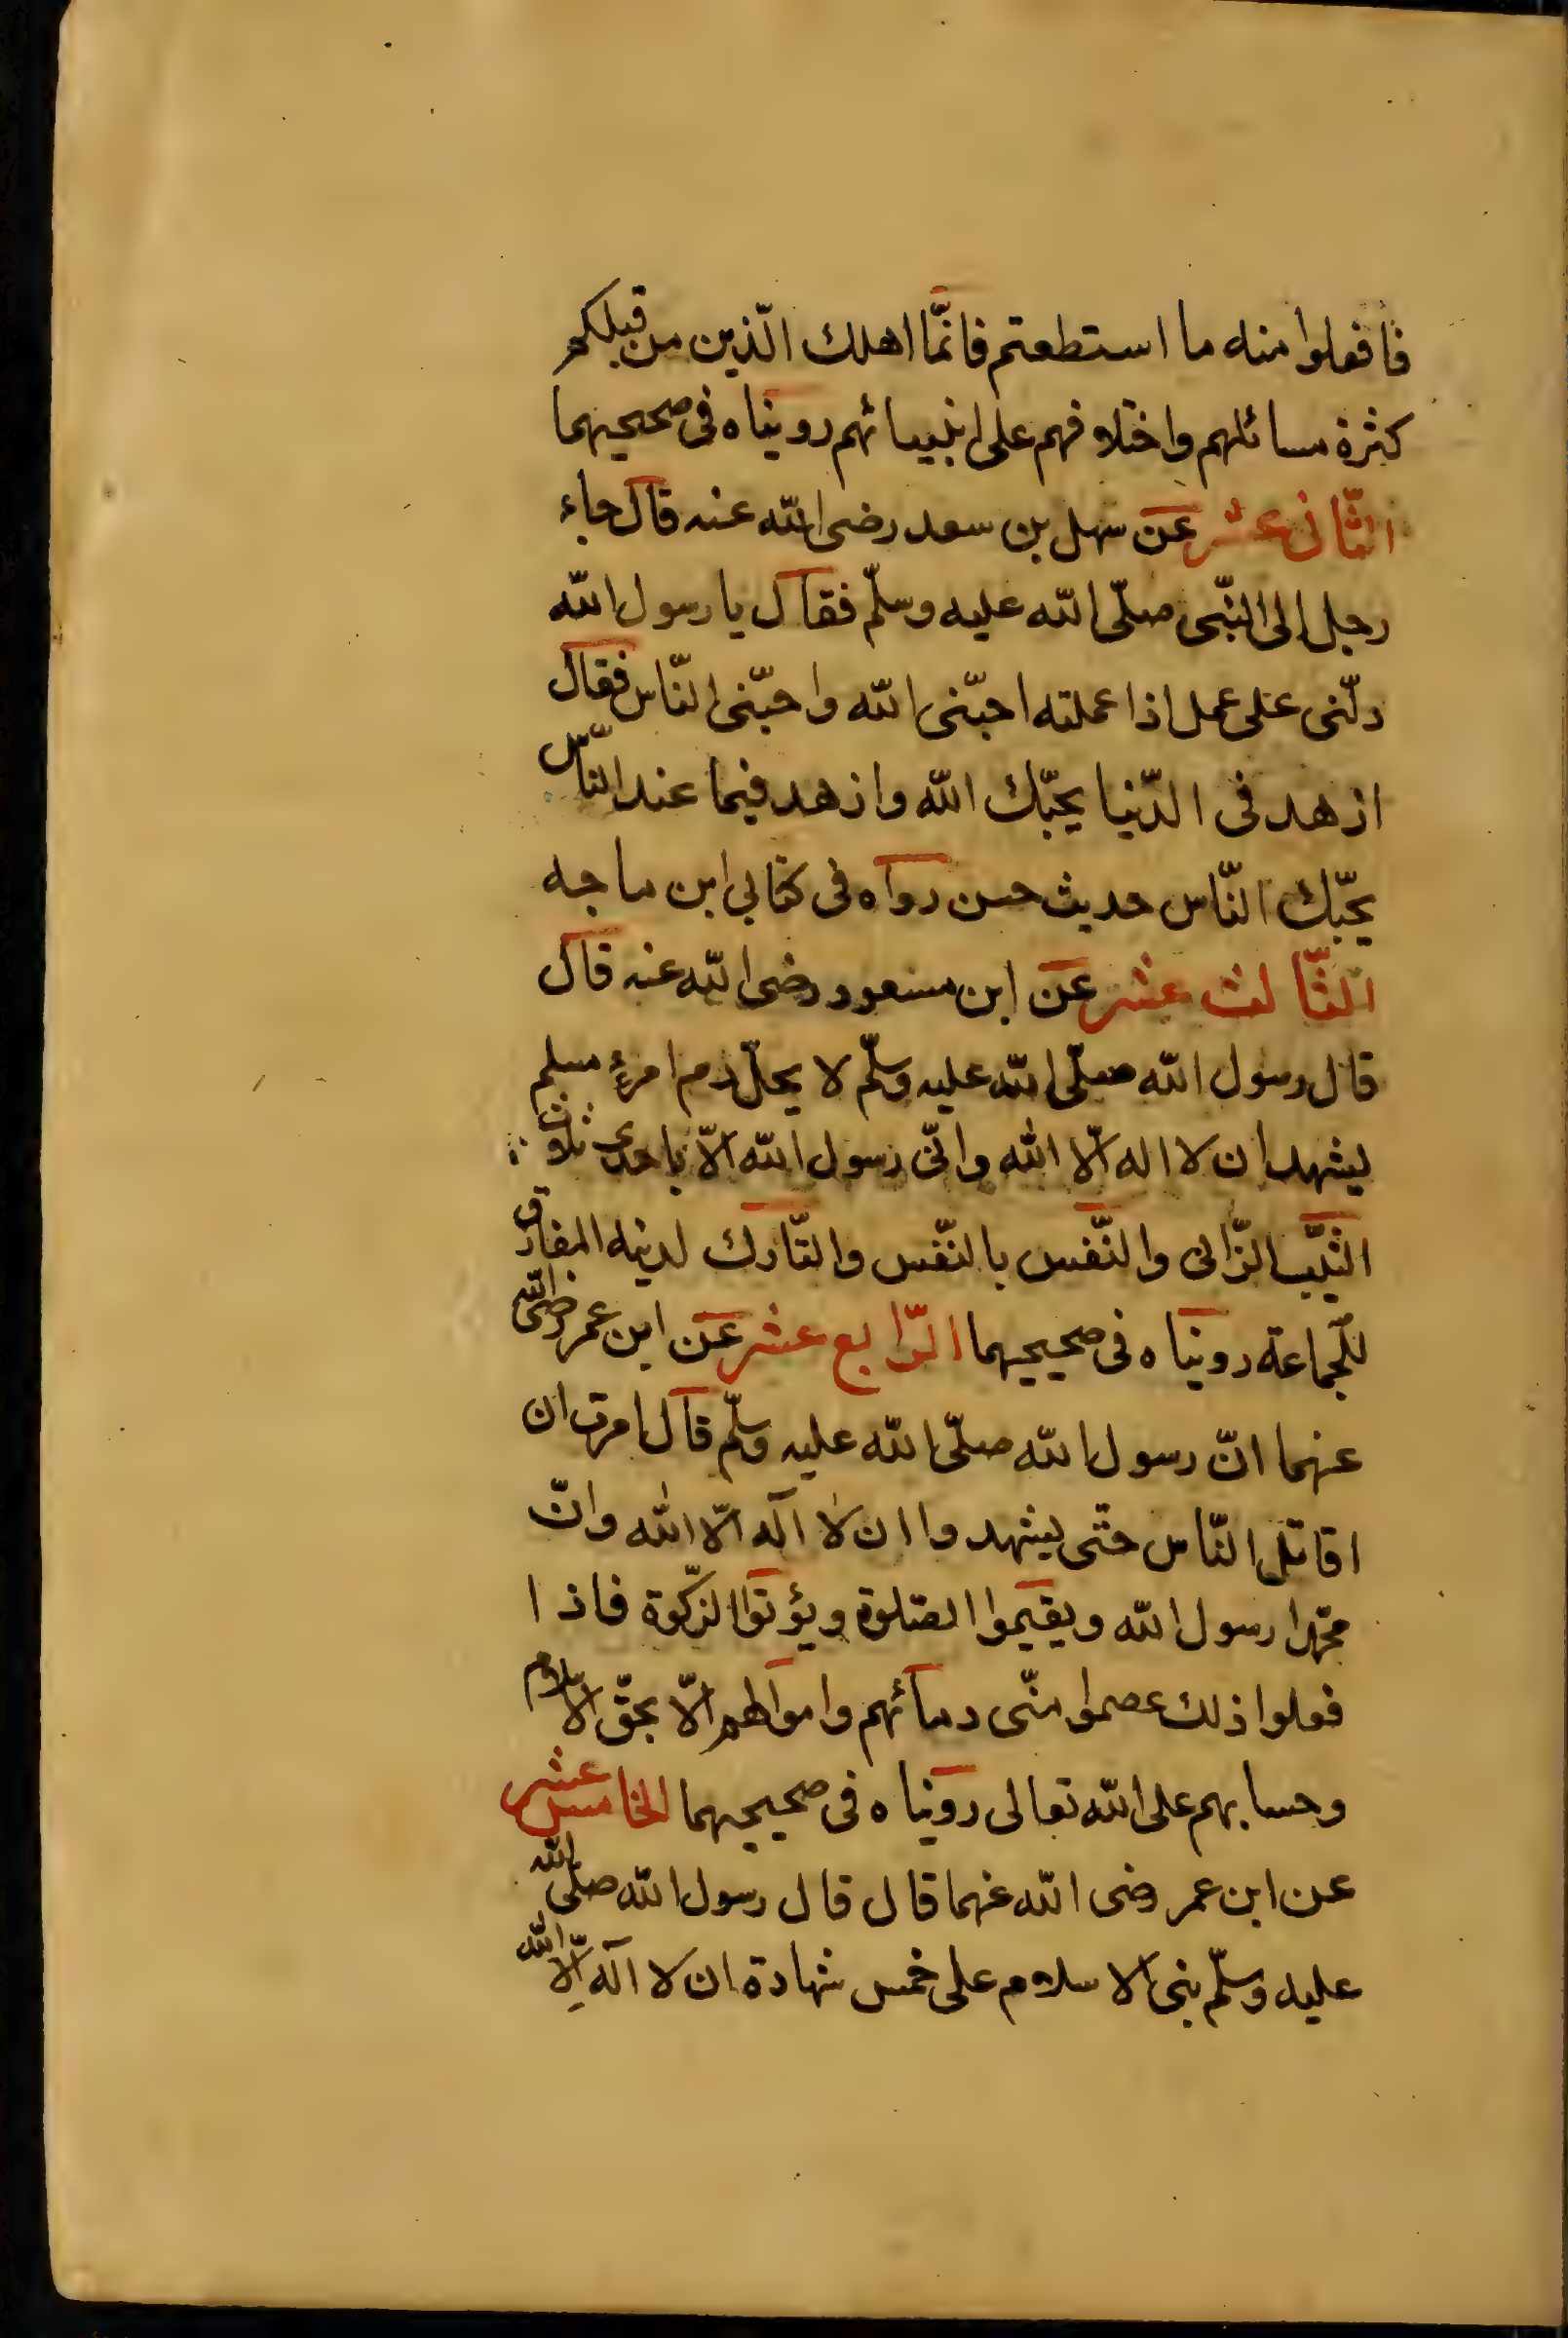 فافعلوا منه ما استطعتم فانّما اهلك الّذين من قبلكم
كثرة مسائلهم واختلافهم على انبيائهم رويناه فى صحيحيهما
الثّانى عشر عن سهل بن سعد رضى الله عنه قال جاء
رجل الى النّبى صلّى الله عليه وسلّم فقال يا رسول الله
دلّنى على عمل اذا عملته احبّنى الله واحبّنى النّاس فقال
ازهد فى الدّنيا يحبّك الله وازهد فيما عند النّاس
يحبّك النّاس حديث حسن رواه فى كتابى ابن ماجه
الثّالث عشر عن ابن مسعود رضى الله عنه قال
قال رسول الله صلّى الله عليه وسلّم لا يحلّ دم امرئ مسلم
يشهد ان لا اله الّا الله وانّى رسول الله الّا باحدى ثلاث
الثّيّب الزّانى والنّفس بالنّفس والتّارك لدينه المفارق
للجّماعة رويناه فى صحيحيهما الرّابع عشر عن ابن عمر رضى الله
عنهما انّ رسول الله صلّى الله عليه وسلّم قال امرت ان
اقاتل النّاس حتّى يشهدوا ان لا اله الّا الله وانّ
محمّدا رسول الله ويقيموا الصّلوة ويؤتوا الزّكوة فاذا
فعلوا ذلك عصموا منّى دمائهم واموالهم الّا بحقّ الاسلام
وحسابهم على الله تعالى رويناه فى صحيحيهما الخامس عشر
عن ابن عمر رضى الله عنهما قال قال رسول الله صلّى الله
عليه وسلّم بنى الاسلام على خمس شهادة ان لا اله الّا الله